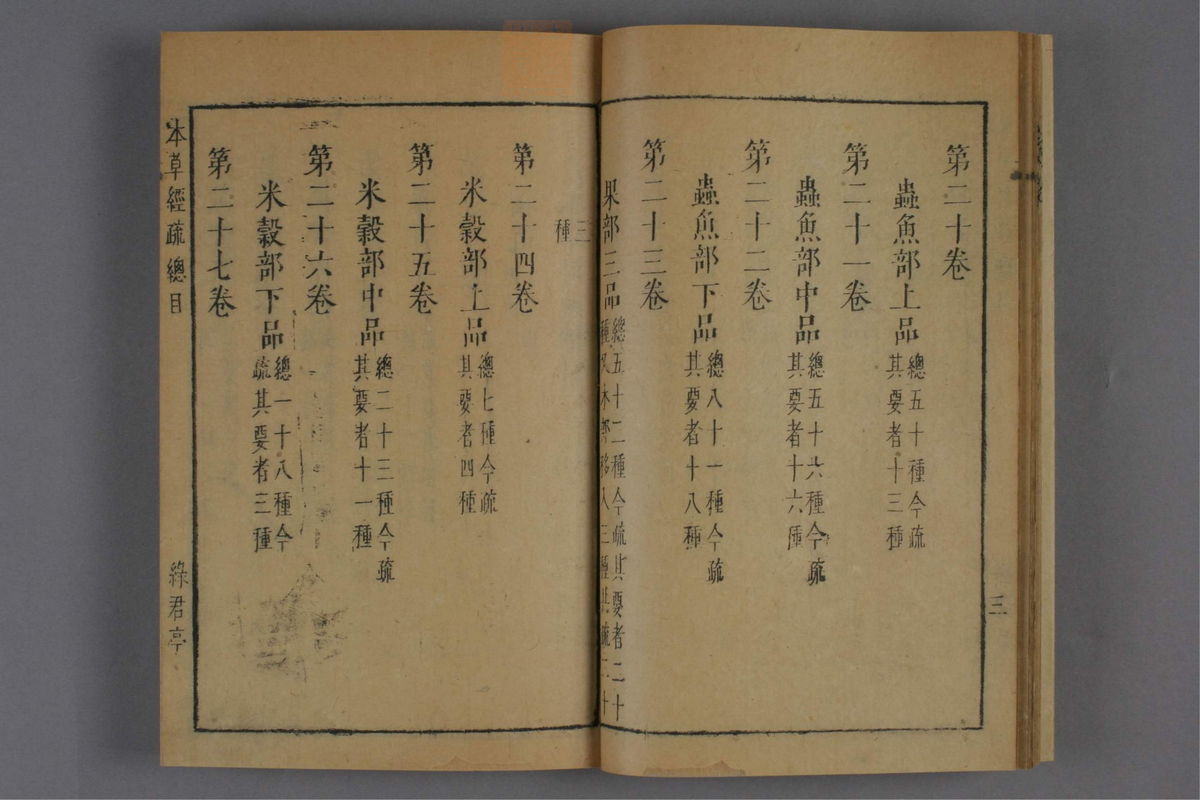 三
第二十卷
蟲魚部上品總五十種今疏
其要者十三種
第二十一卷
蟲魚部中品總五十六種今疏
其要者十六種
第二十二卷
蟲魚部下品總八十一種今疏
其要者十八種
第二十三卷
果部三品總五十二種今疏其要者二十
種又木部移入三種共疏二十
三
種
第二十四卷
米穀部上品總七種今疏
其要者四種
第二十五卷
米穀部中品總二十三種今疏
其要者十一種
第二十六卷
米穀部下品總一十八種今
疏其要者三種
第二十七卷
本草經疏總目 綠君亭